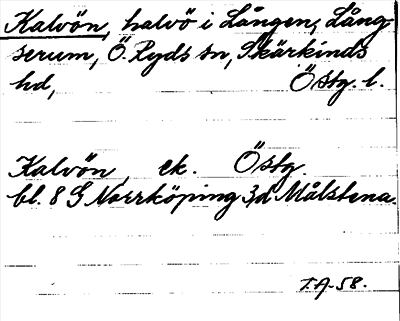 Kalvön, halvö i Lången, Lång-
serum, Ö. Ryds sn, Skärkinds
hd, Östg. l.
Kalvön ek. Östg.
bl. 8 G Norrköping 3,d Målstena.
T.A-58.